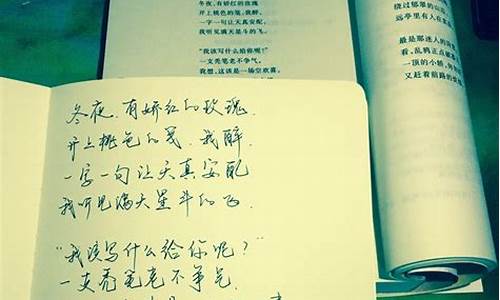 冬夜，有娇红的玫瑰
开上桃色的笺，我醉，
一字一句让天真安配，
我听见满天星斗的飞。
“我该写什么给你呢？”
一支秃笔老不争气。
我想，这该是一场空欢喜。
绕过郁翠的山
远亭里有人在
最是那迷人的
看，乱鸦正点破
一顶的小轿，
又赶着前路的
冬夜，有娇红的玫瑰，
开上桃色的笺，我醉
一字一句让天真安配
我听见满天星斗的飞
“我该写什么给你呢？”
一支秃笔老不争气